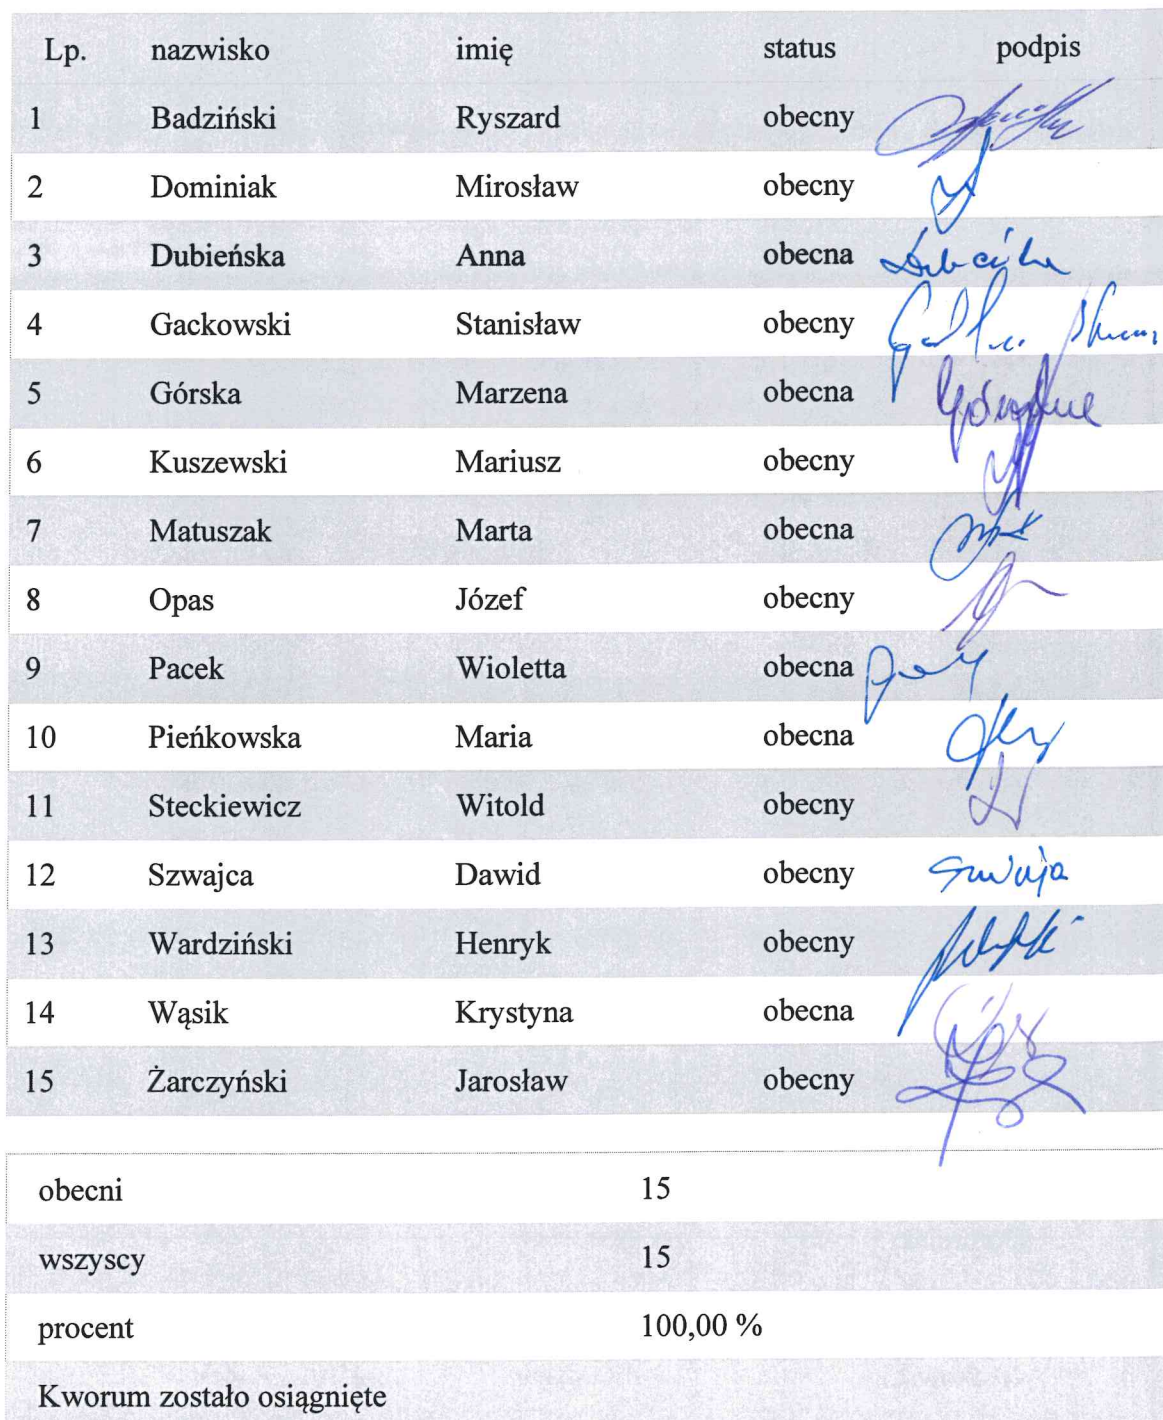 Lp. nazwisko imię status podpis
1 Badziński Ryszard obecny
2 Dominiak Mirosław obecny
3 Dubieńska Anna obecna
4 Gackowski Stanisław obecny
5 Górska Marzena obecna
6 Kuszewski Mariusz obecny
7 Matuszak Marta obecna
8 Opas Józef obecny
9 Pacek Wioletta obecna
10 Pieńkowska Maria obecna
11 Steckiewicz Witold obecny
12 Szwajca Dawid obecny
13 Wardziński Henryk obecny
14 Wąsik Krystyna obecna
15 Żarczyński Jarosław obecny
obecni 15
wszyscy 15
procent 100,00 %
Kworum zostało osiągnięte